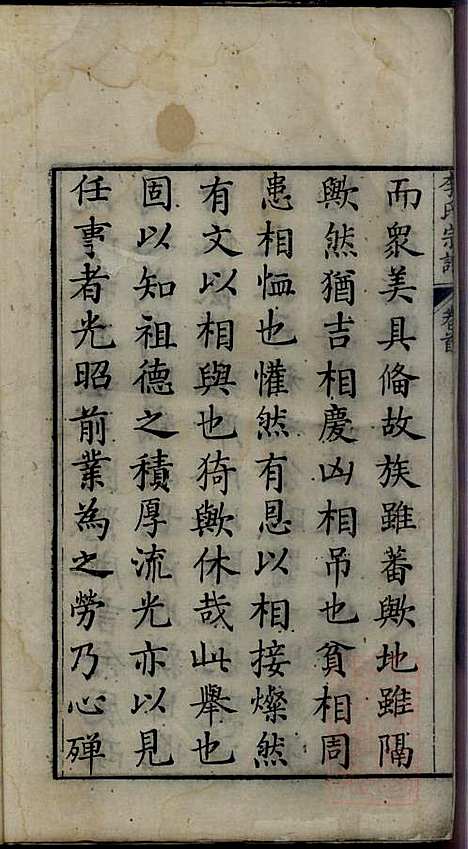 李氏宗譜
卷首
而眾美具俻故族雖蕃歟地雖隔
歟然猶吉相慶凶相吊也貧相周
患相恤也懽然有恩以相接燦然
有文以相與也猗歟休哉此舉也
固以知祖德之積厚流光亦以見
任事者光昭前業為之勞乃心殫